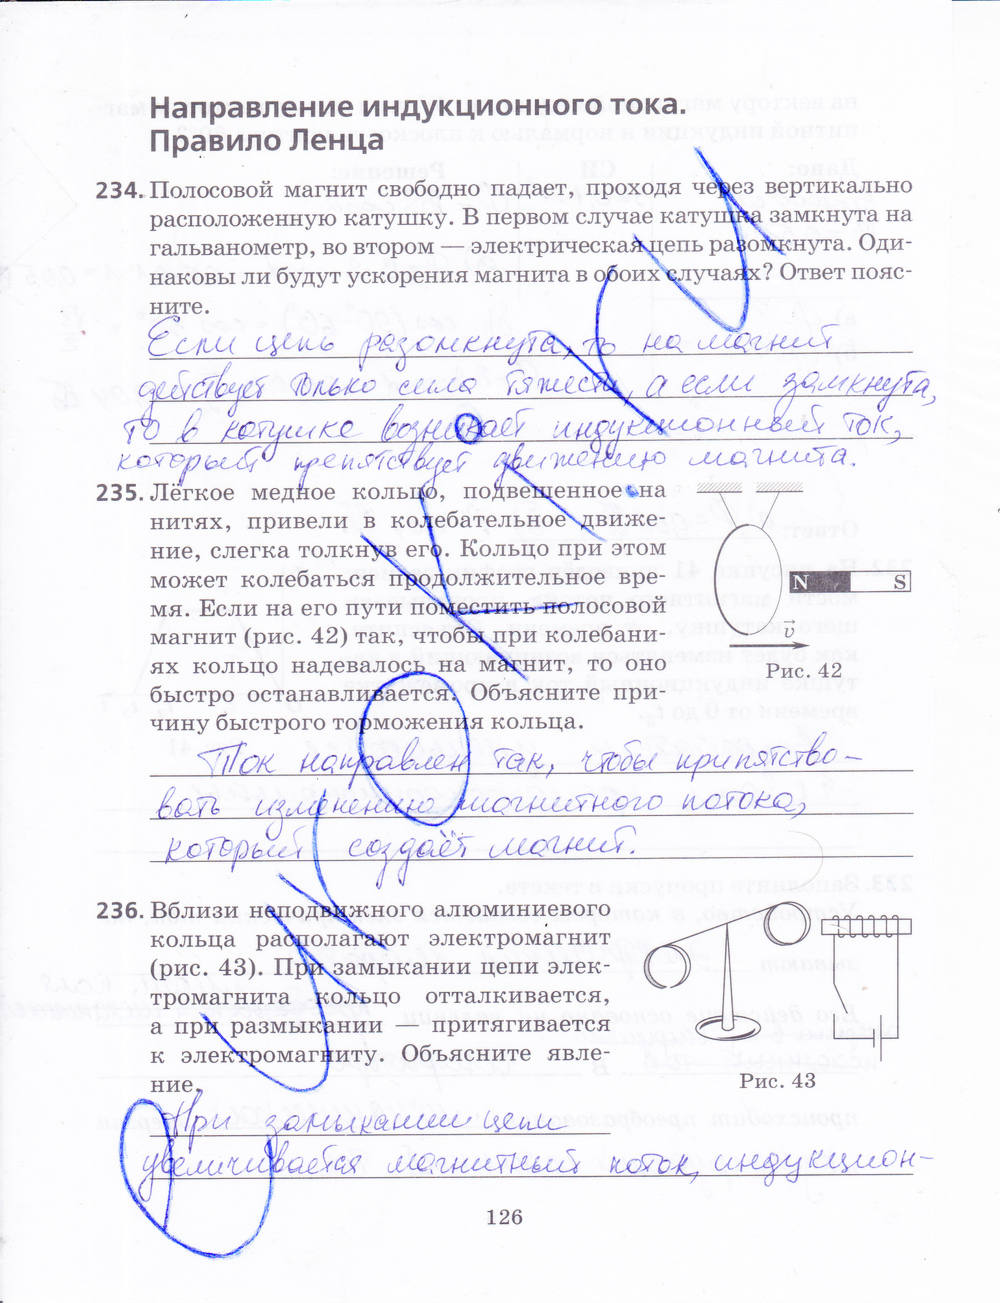 Направление индукционного тока.
Правило Ленца
234. Полосовой магнит свободно падает, проходя через вертикально
расположенную катушку. В первом случае катушка замкнута на
гальванометр, во втором — электрическая цепь разомкнута. Оди-
наковы ли будут ускорения магнита в обоих случаях? Ответ пояс-
ните.
Если цепь разомкнута, то на магнит
действует только сила тяжести, а если замкнута,
то в катушке возникает индукционный ток,
который препятствует движению магнита.
235. Лёгкое медное кольцо, подвешенное на
нитях, привели в колебательное движе-
ние, слегка толкнув его. Кольцо при этом
может колебаться продолжительное вре-
мя. Если на его пути поместить полосовой
магнит (рис. 42) так, чтобы при колебани-
ях кольцо надевалось на магнит, то оно
быстро останавливается. Объясните при-
чину быстрого торможения кольца.
N S
v
Рис. 42
Ток направлен так, чтобы припятство-
вать изменению магнитного потока,
который создаёт магнит.
236. Вблизи неподвижного алюминиевого
кольца располагают электромагнит
(рис. 43). При замыкании цепи элек-
тромагнита кольцо отталкивается,
а при размыкании — притягивается
к электромагниту. Объясните явле-
ние.
Рис. 43
При замыкании цепи
увеличивается магнитный поток, индукцион-
126